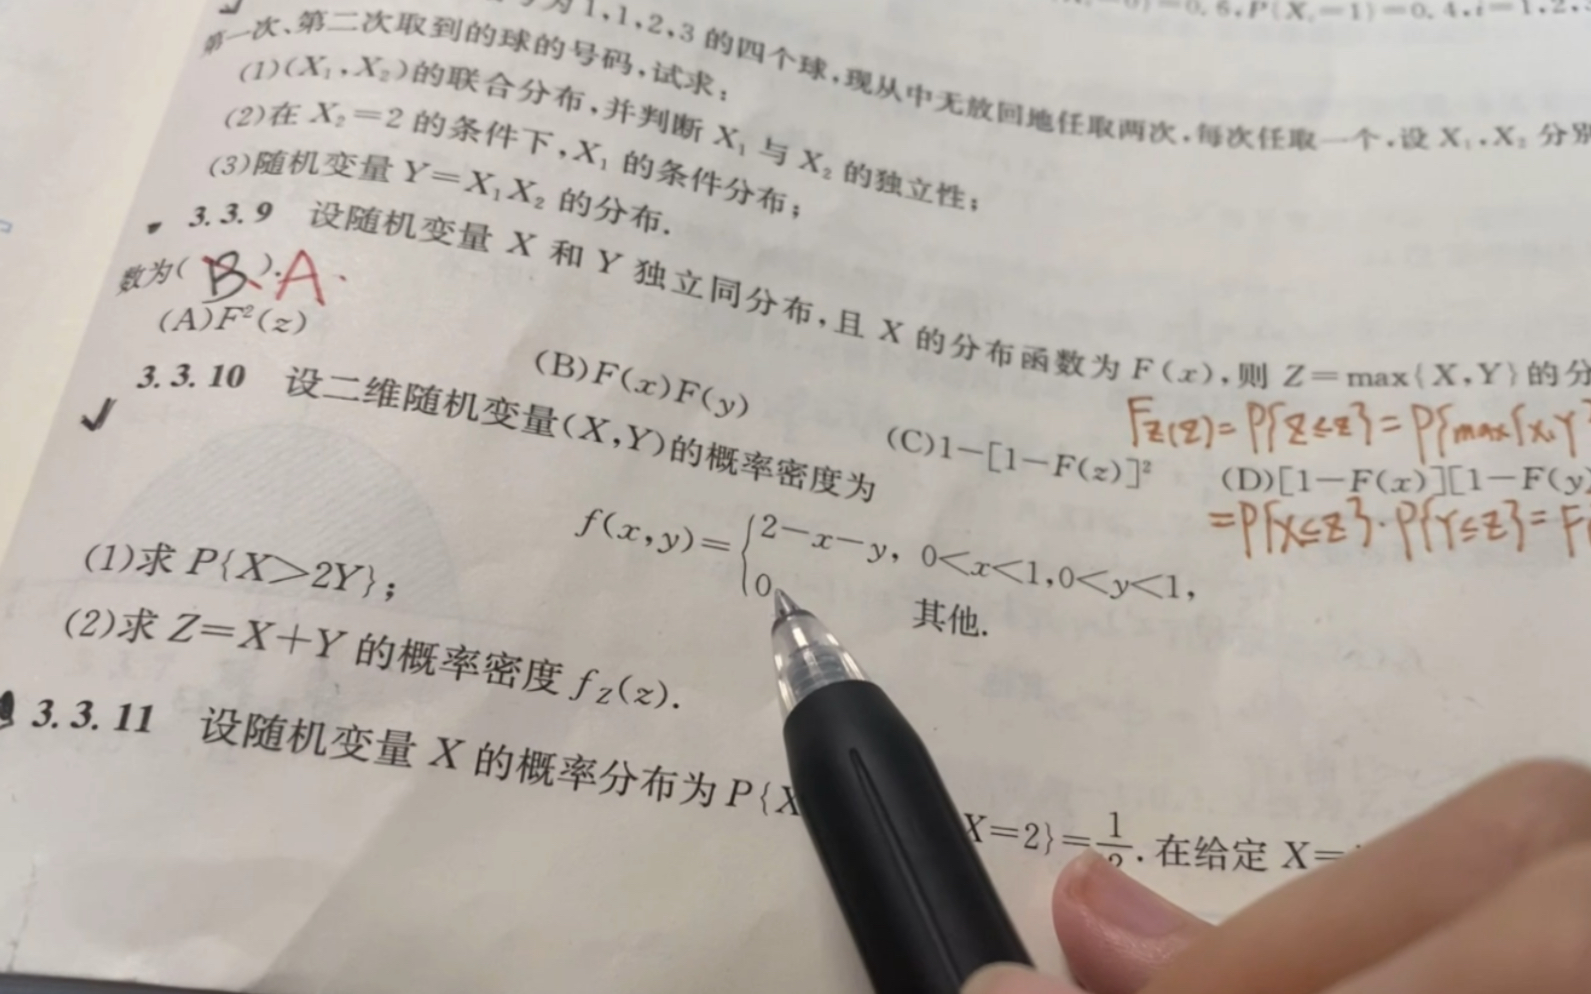 1,1,2,3 的四个球,现从中无放回地任取两次,每次任取一个,设 X₁,X₂ 分别
=0.6,P{X =1}=0.4,i=1,2,
第一次、第二次取到的球的号码,试求:
(1)(X₁,X₂)的联合分布,并判断 X₁ 与 X₂ 的独立性;
(2)在 X₂=2 的条件下,X₁ 的条件分布;
(3)随机变量 Y=X₁X₂ 的分布.
3.3.9 设随机变量 X 和 Y 独立同分布,且 X 的分布函数为 F(x),则 Z=max{X,Y}的分
数为( B ). A.
F_Z(z)=P{Z≤z}=P{max{X,Y
(A)F²(z) (B)F(x)F(y) (C)1-[1-F(z)]² (D)[1-F(x)][1-F(y)
=P{X≤z}·P{Y≤z}=F
3.3.10 设二维随机变量(X,Y)的概率密度为
f(x,y)={2-x-y, 0<x<1,0<y<1,
0, 其他.
(1)求 P{X>2Y};
(2)求 Z=X+Y 的概率密度 f_Z(z).
3.3.11 设随机变量 X 的概率分布为 P{X X=2}=1/2. 在给定 X=